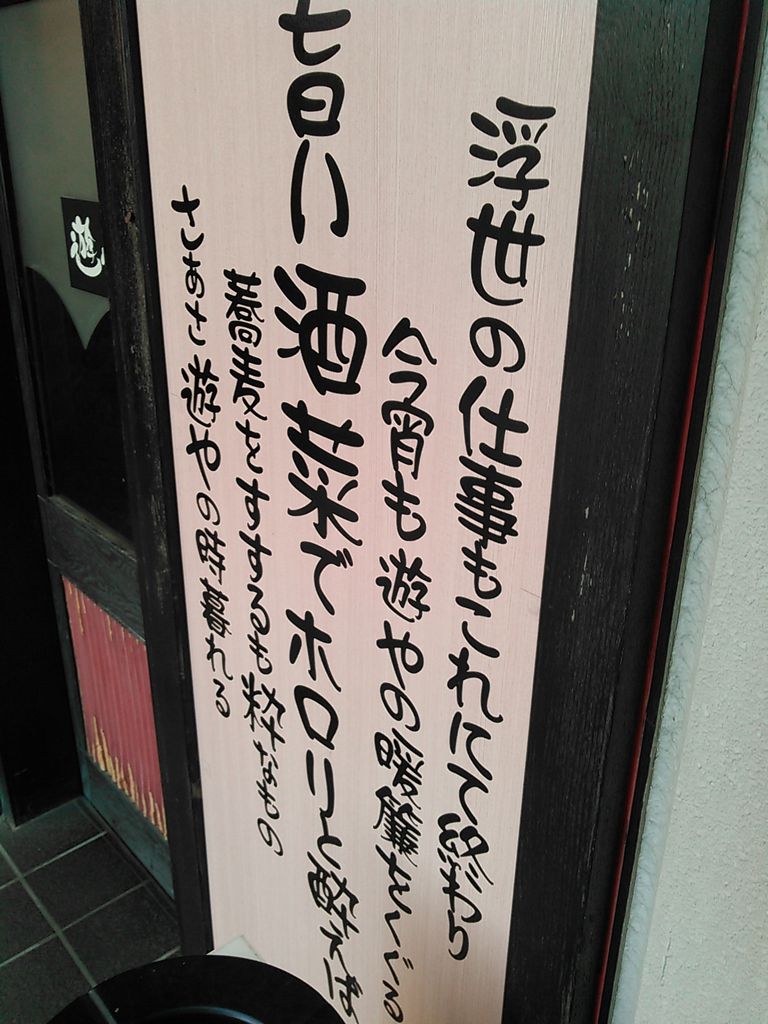 浮世の仕事もこれにて終わり
今宵も遊やの暖簾をくぐる
旨い酒菜でホロリと酔えば
蕎麦をたぐるも粋なもの
さあさ遊やの
遊